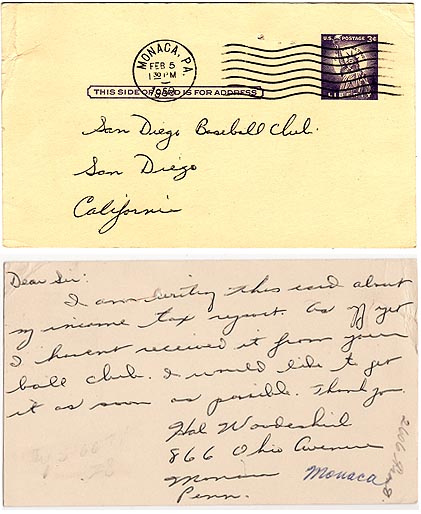 MONACA, PA.
FEB 5
1 30 PM
U.S. POSTAGE 3¢
LIBERTY
THIS SIDE OF CARD IS FOR ADDRESS
San Diego Baseball Club.
San Diego
California
Dear Sir:
I am writing this card about
my income tax report. As of yet
I havent received it from your
ball club. I would like to get
it as soon as possible. Thank you.
Hal Woodeshick
866 Ohio Avenue
Monaca Monaca
Penn.